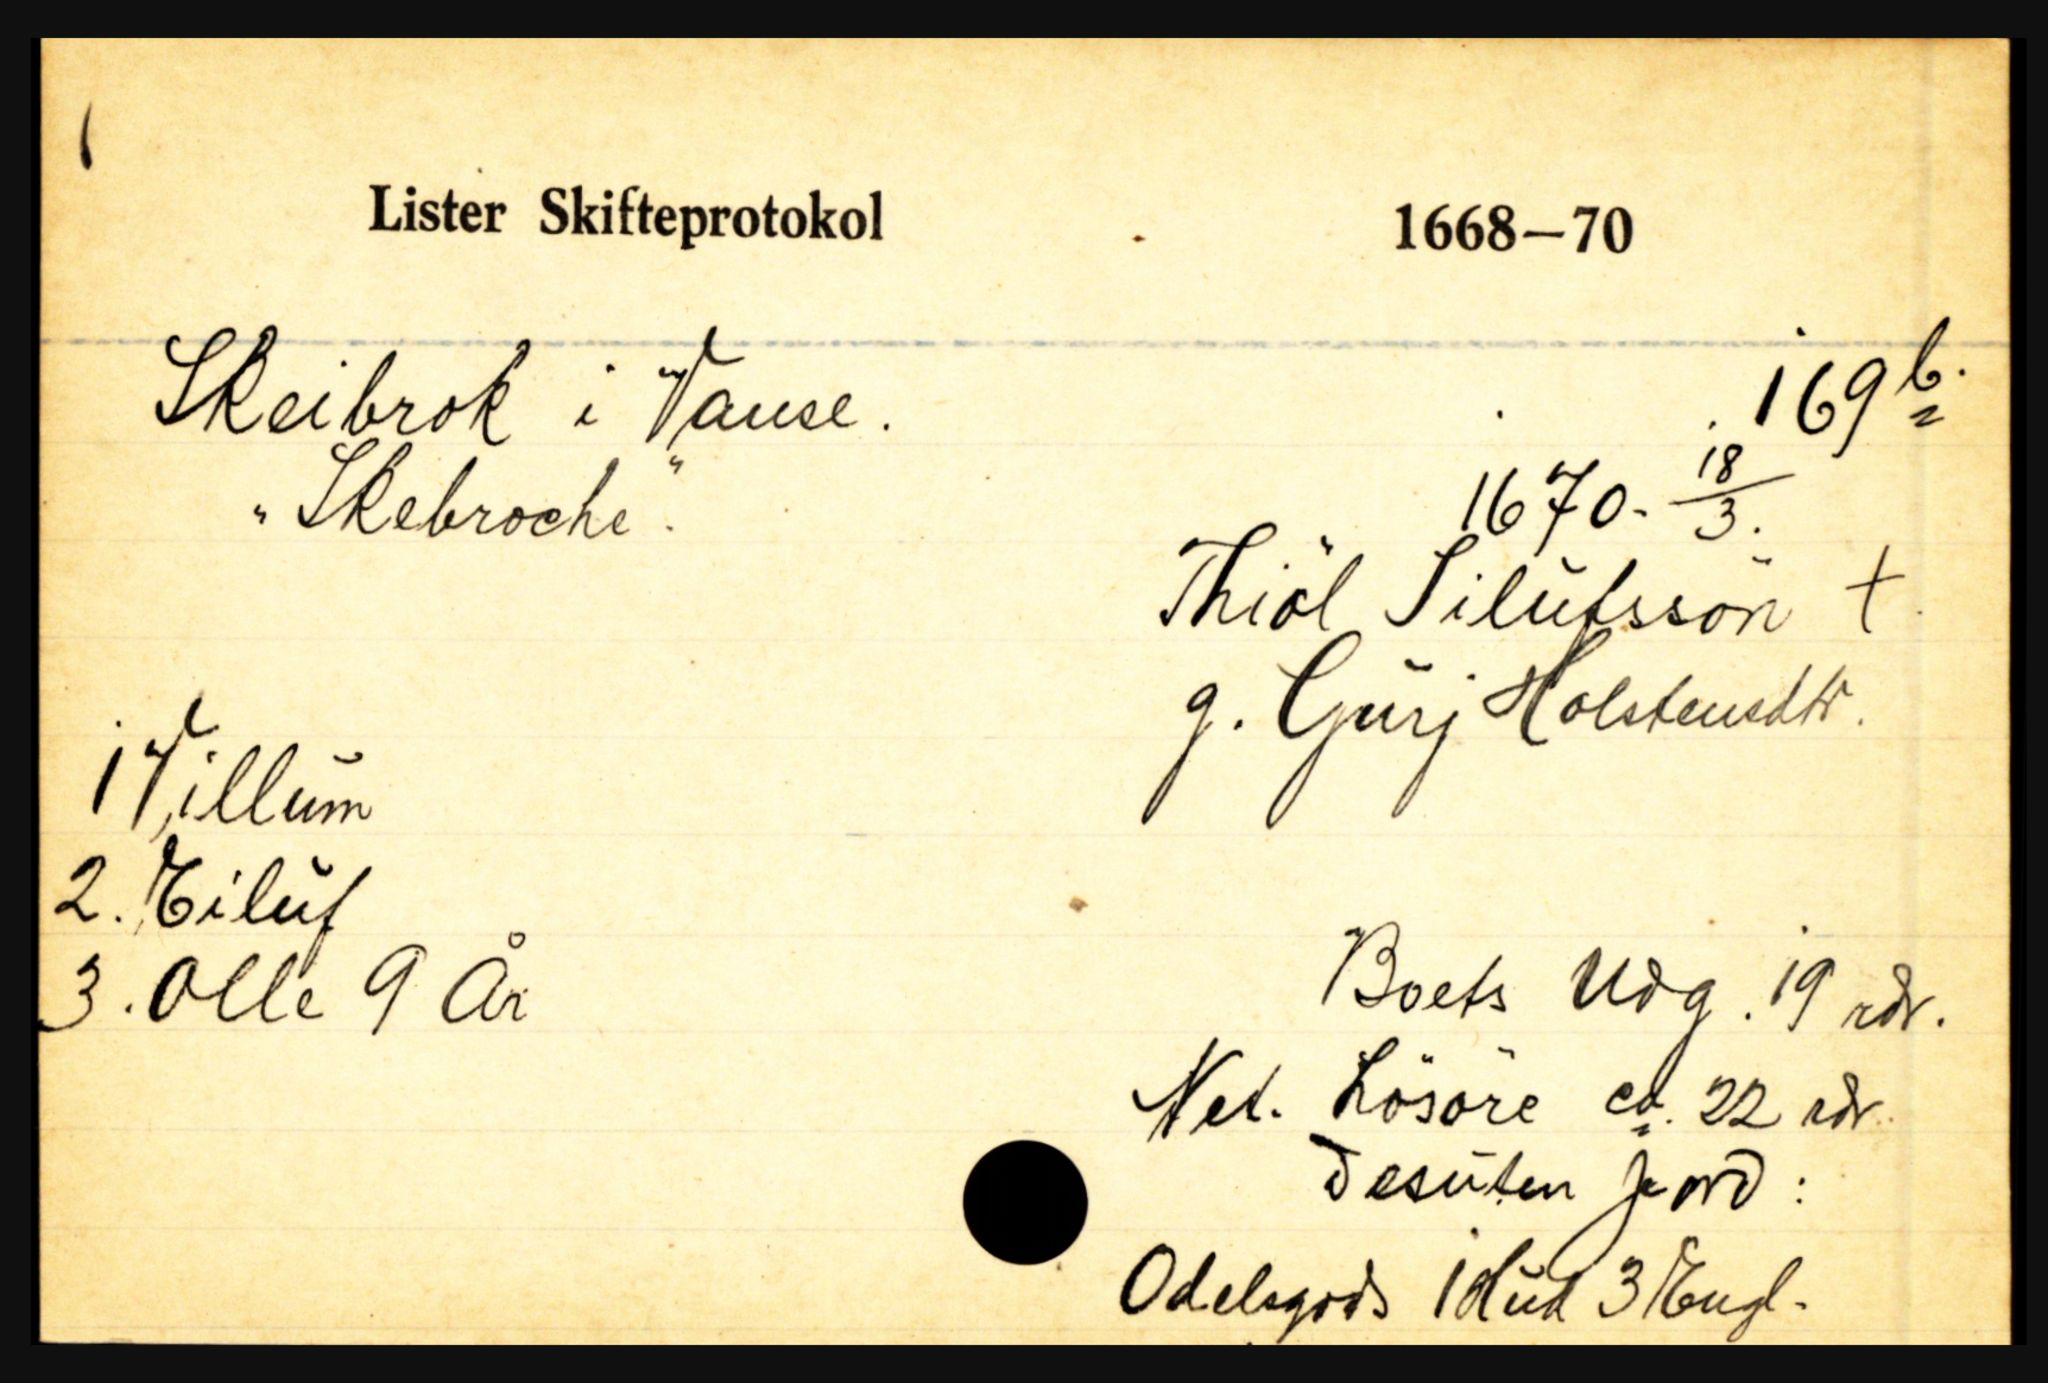 Lister Skifteprotokol 1668-70
Skeibrok i Vanse. 169 b.
"Skebroche". 1670 - 18/3.
Thiöl Silufssön †
g. Gurj Holstensdtr.
1 Villum
2. Eiluf
3. Olle 9 År
Boets Udg. 19 rdr.
Net. Lösöre ca. 22 rdr.
Desuten Jord:
Odelsgods 1 Hud 3 Engl.